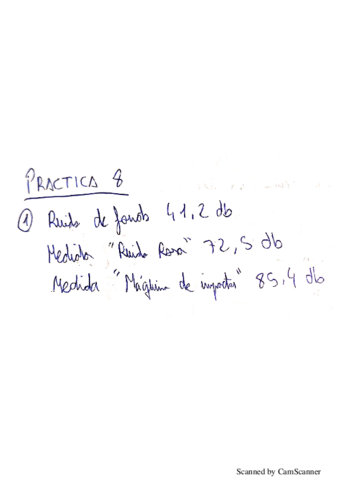 PRACTICA 8
① Ruido de fondo 41,2 db
Medida "Ruido Rosa" 72,5 db
Medida "Máquina de impactos" 85,4 db
Scanned by CamScanner